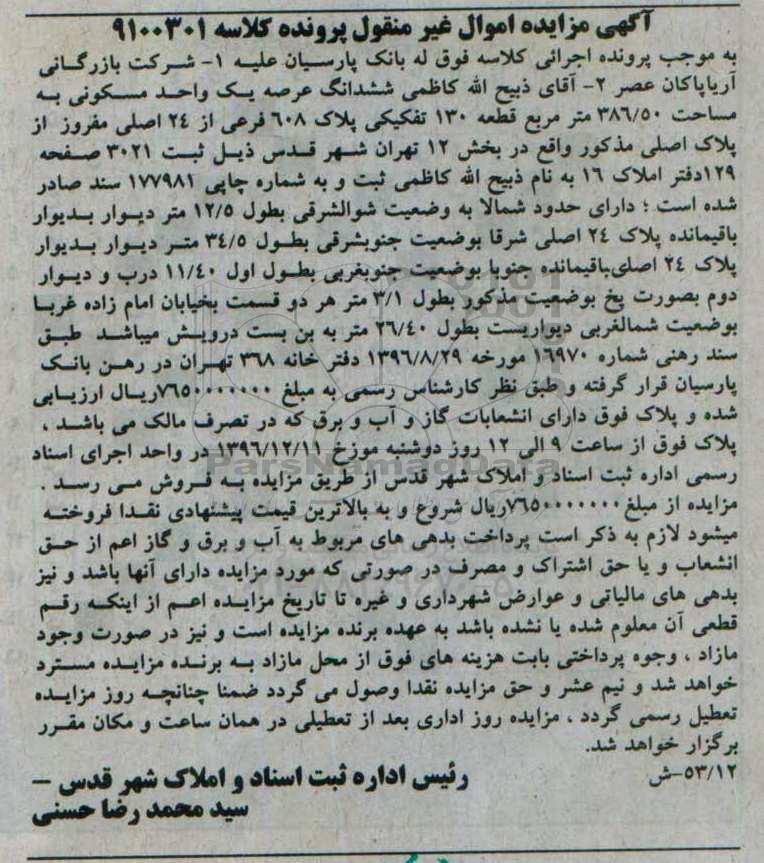 آگهی مزایده اموال غیر منقول پرونده کلاسه ۹۱۰۰۳۰۱
به موجب پرونده اجرائی کلاسه فوق له بانک پارسیان علیه ۱- شرکت بازرگانی
آریاپاکان عصر ۲- آقای ذبیح الله کاظمی ششدانگ عرصه یک واحد مسکونی به
مساحت ۳۸۶/۵۰ متر مربع قطعه ۱۳۰ تفکیکی پلاک ۶۰۸ فرعی از ۲۴ اصلی مفروز از
پلاک اصلی مذکور واقع در بخش ۱۲ تهران شهر قدس ذیل ثبت ۳۰۲۱ صفحه
۱۲۹دفتر املاک ۱۶ به نام ذبیح الله کاظمی ثبت و به شماره چاپی ۱۷۷۹۸۱ سند صادر
شده است ؛ دارای حدود شمالا به وضعیت شوالشرقی بطول ۱۲/۵ متر دیوار بدیوار
باقیمانده پلاک ۲۴ اصلی شرقا بوضعیت جنوبشرقی بطول ۳۴/۵ متر دیوار بدیوار
پلاک ۲۴ اصلی‌باقیمانده جنوبا بوضعیت جنوبغربی بطول اول ۱۱/۴۰ درب و دیوار
دوم بصورت پخ بوضعیت مذکور بطول ۳/۱ متر هر دو قسمت بخیابان امام زاده غربا
بوضعیت شمالغربی دیواریست بطول ۲۶/۴۰ متر به بن بست درویش میباشد طبق
سند رهنی شماره ۱۶۹۷۰ مورخه ۱۳۹۶/۸/۲۹ دفتر خانه ۳۶۸ تهران در رهن بانک
پارسیان قرار گرفته و طبق نظر کارشناس رسمی به مبلغ ۷۶۵۰۰۰۰۰۰۰ریال ارزیابی
شده و پلاک فوق دارای انشعابات گاز و آب و برق که در تصرف مالک می باشد ،
پلاک فوق از ساعت ۹ الی ۱۲ روز دوشنبه موزخ ۱۳۹۶/۱۲/۱۱ در واحد اجرای اسناد
رسمی اداره ثبت اسناد و املاک شهر قدس از طریق مزایده به فروش می رسد .
مزایده از مبلغ ۷۶۵۰۰۰۰۰۰۰ریال شروع و به بالاترین قیمت پیشنهادی نقدا فروخته
میشود لازم به ذکر است پرداخت بدهی های مربوط به آب و برق و گاز اعم از حق
انشعاب و یا حق اشتراک و مصرف در صورتی که مورد مزایده دارای آنها باشد و نیز
بدهی های مالیاتی و عوارض شهرداری و غیره تا تاریخ مزایده اعم از اینکه رقم
قطعی آن معلوم شده یا نشده باشد به عهده برنده مزایده است و نیز در صورت وجود
مازاد ، وجوه پرداختی بابت هزینه های فوق از محل مازاد به برنده مزایده مسترد
خواهد شد و نیم عشر و حق مزایده نقدا وصول می گردد ضمنا چنانچه روز مزایده
تعطیل رسمی گردد ، مزایده روز اداری بعد از تعطیلی در همان ساعت و مکان مقرر
برگزار خواهد شد.
۵۳/۱۲-ش
رئیس اداره ثبت اسناد و املاک شهر قدس –
سید محمد رضا حسنی
ParsNamadData